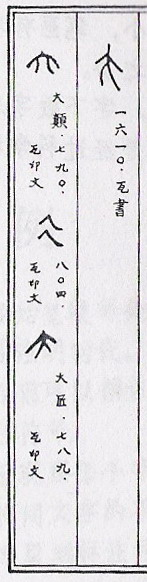 一六一〇·瓦書
大顛·七九〇·
瓦印文
八〇四·
瓦印文
大匠·七八九·
瓦印文